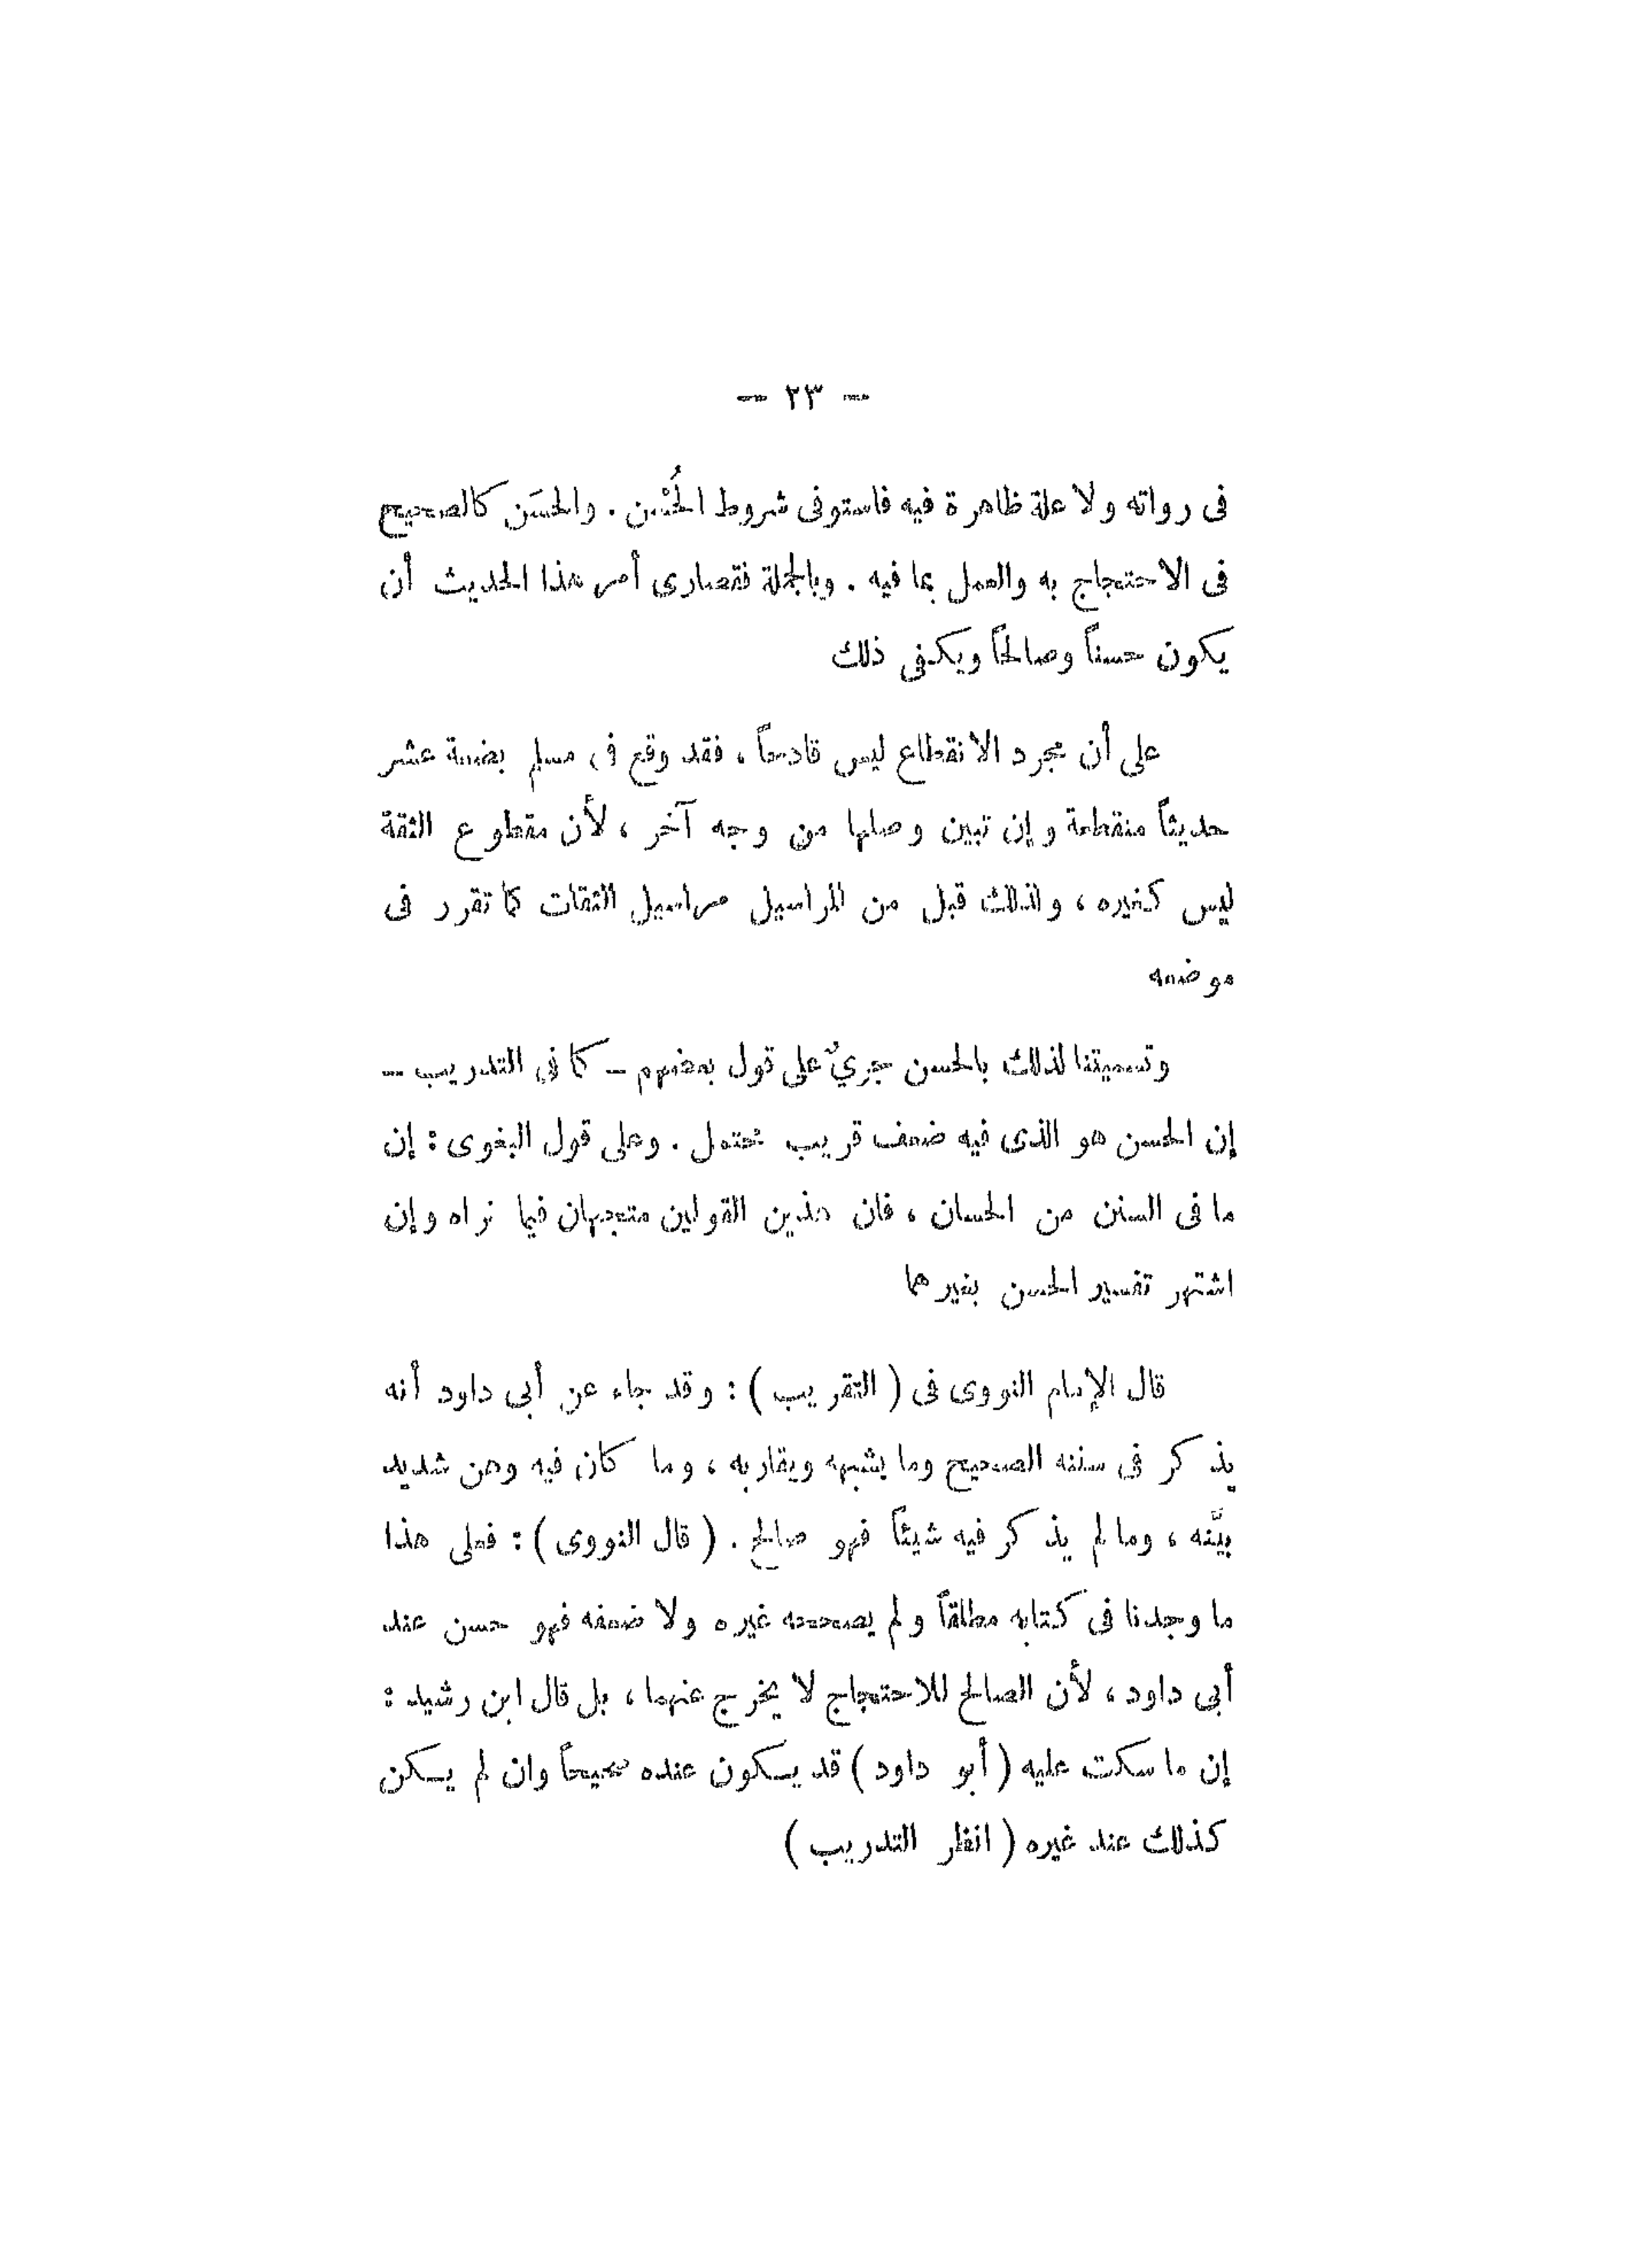 — ٢٣ —
فى رواته ولا علة ظاهرة فيه فاستوفى شروط الحُسْن . والحسَن كالصحيح
فى الاحتجاج به والعمل بما فيه . وبالجملة فقصارى أمر هذا الحديث أن
يكون حسناً وصالحاً ويكفى ذلك
على أن مجرد الانقطاع ليس قادحاً ، فقد وقع فى مسلم بضعة عشر
حديثاً منقطعة وإن تبين وصلها من وجه آخر ، لأن مقطوع الثقة
ليس كغيره ، ولذلك قبل من المراسيل مراسيل الثقات كما تقرر فى
موضعه
وتسميتنا لذلك بالحسن جريٌ على قول بعضهم – كما فى التدريب –
إن الحسن هو الذى فيه ضعف قريب محتمل . وعلى قول البغوى : إن
ما فى السنن من الحسان ، فان هذين القولين متجهان فيما نراه وإن
اشتهر تفسير الحسن بغيرهما
قال الإمام النووى فى ( التقريب ) : وقد جاء عن أبى داود أنه
يذكر فى سننه الصحيح وما يشبهه ويقاربه ، وما كان فيه وهن شديد
بيَّنه ، وما لم يذكر فيه شيئاً فهو صالح . ( قال النووى ) : فعلى هذا
ما وجدنا فى كتابه مطلقاً ولم يصححه غيره ولا ضعفه فهو حسن عند
أبى داود ، لأن الصالح للاحتجاج لا يخرج عنهما ، بل قال ابن رشيد :
إن ما سكت عليه ( أبو داود ) قد يكون عنده صحيحاً وان لم يكن
كذلك عند غيره ( انظر التدريب )